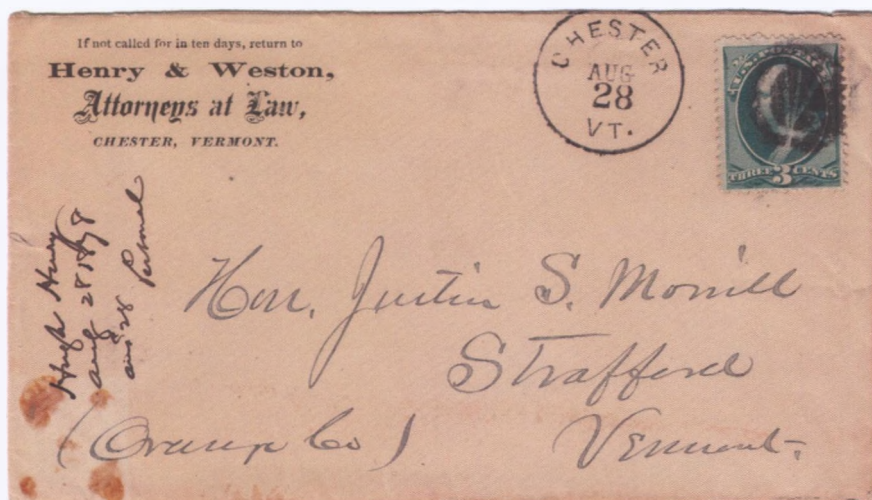 If not called for in ten days, return to
Henry & Weston,
Attorneys at Law,
CHESTER, VERMONT.
CHESTER
AUG
28
VT.
U.S. POSTAGE
THREE 3 CENTS
Hugh Henry
Aug 28 1878
ans 28 Personal
Hon. Justin S. Morrill
Strafford
(Orange Co) Vermont.